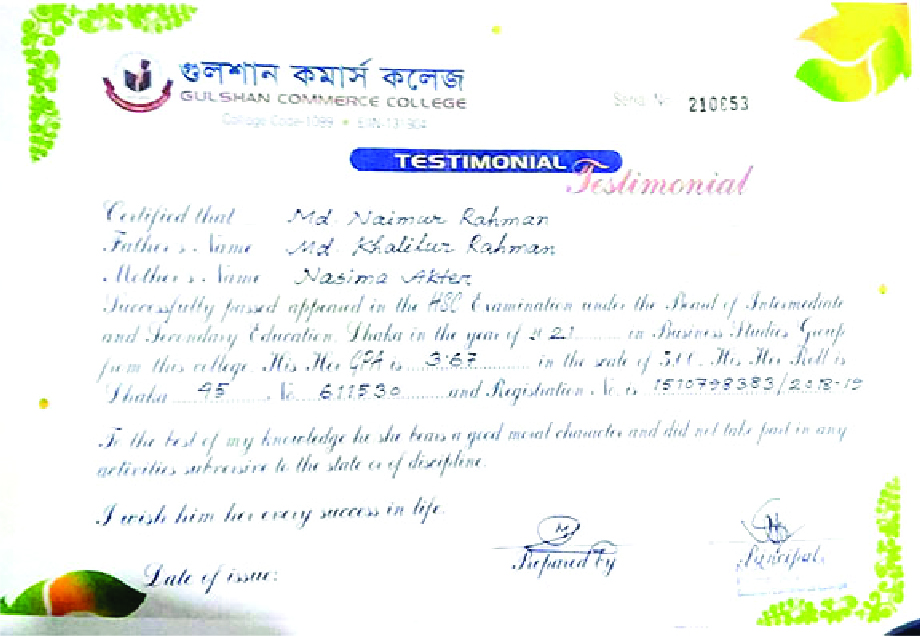 গুলশান কমার্স কলেজ
GULSHAN COMMERCE COLLEGE
Serial No 210653
College Code-1099 • EIIN-131904
TESTIMONIAL
Testimonial
Certified that Md. Naimur Rahman
Father's Name Md. Khalilur Rahman
Mother's Name Nasima Akter
Successfully passed appeared in the HSC Examination under the Board of Intermediate
and Secondary Education, Dhaka in the year of 2021 in Business Studies Group
from this college. His Her GPA is 3.67 in the scale of 5.00. His Her Roll is
Dhaka 45 No. 611530 and Registration No. is 1510798383/2018-19
To the best of my knowledge he she bears a good moral character and did not take part in any
activities subversive to the state or of discipline.
I wish him her every success in life.
Prepared by
Principal
Date of issue: